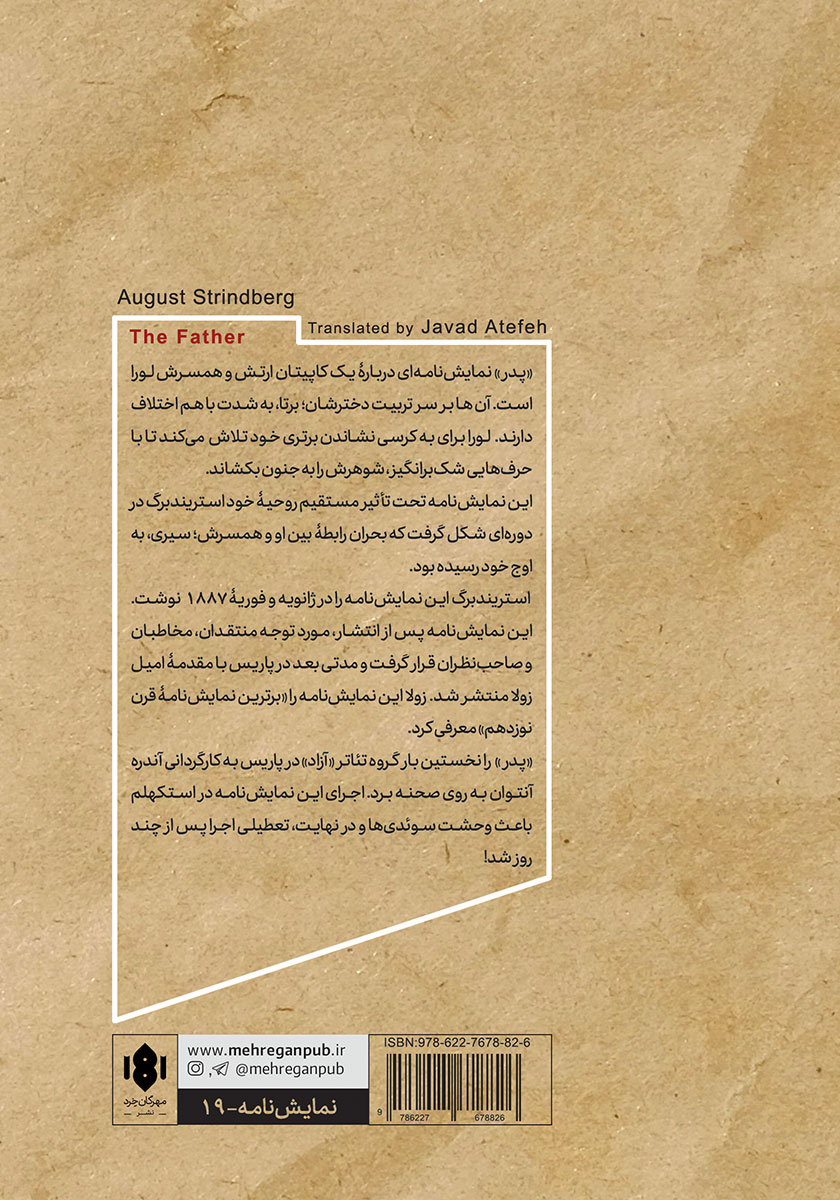 August Strindberg
Translated by Javad Atefeh
The Father
«پدر» نمایش‌نامه‌ای دربارهٔ یک کاپیتان ارتش و همسرش لورا
است. آن ها بر سر تربیت دخترشان؛ برتا، به شدت با هم اختلاف
دارند. لورا برای به کرسی نشاندن برتری خود تلاش می‌کند تا با
حرف‌هایی شک‌برانگیز، شوهرش را به جنون بکشاند.
این نمایش‌نامه تحت تأثیر مستقیم روحیهٔ خود استریندبرگ در
دوره‌ای شکل گرفت که بحران رابطهٔ بین او و همسرش؛ سیری، به
اوج خود رسیده بود.
استریندبرگ این نمایش‌نامه را در ژانویه و فوریهٔ ۱۸۸۷ نوشت.
این نمایش‌نامه پس از انتشار، مورد توجه منتقدان، مخاطبان
و صاحب‌نظران قرار گرفت و مدتی بعد در پاریس با مقدمهٔ امیل
زولا منتشر شد. زولا این نمایش‌نامه را «برترین نمایش‌نامهٔ قرن
نوزدهم» معرفی کرد.
«پدر» را نخستین بار گروه تئاتر «آزاد» در پاریس به کارگردانی آندره
آنتوان به روی صحنه برد. اجرای این نمایش‌نامه در استکهلم
باعث وحشت سوئدی‌ها و در نهایت، تعطیلی اجرا پس از چند
روز شد!
مهرگان خرد
نشر
www.mehreganpub.ir
, @mehreganpub
نمایش‌نامه-۱۹
ISBN:978-622-7678-82-6
9 786227 678826